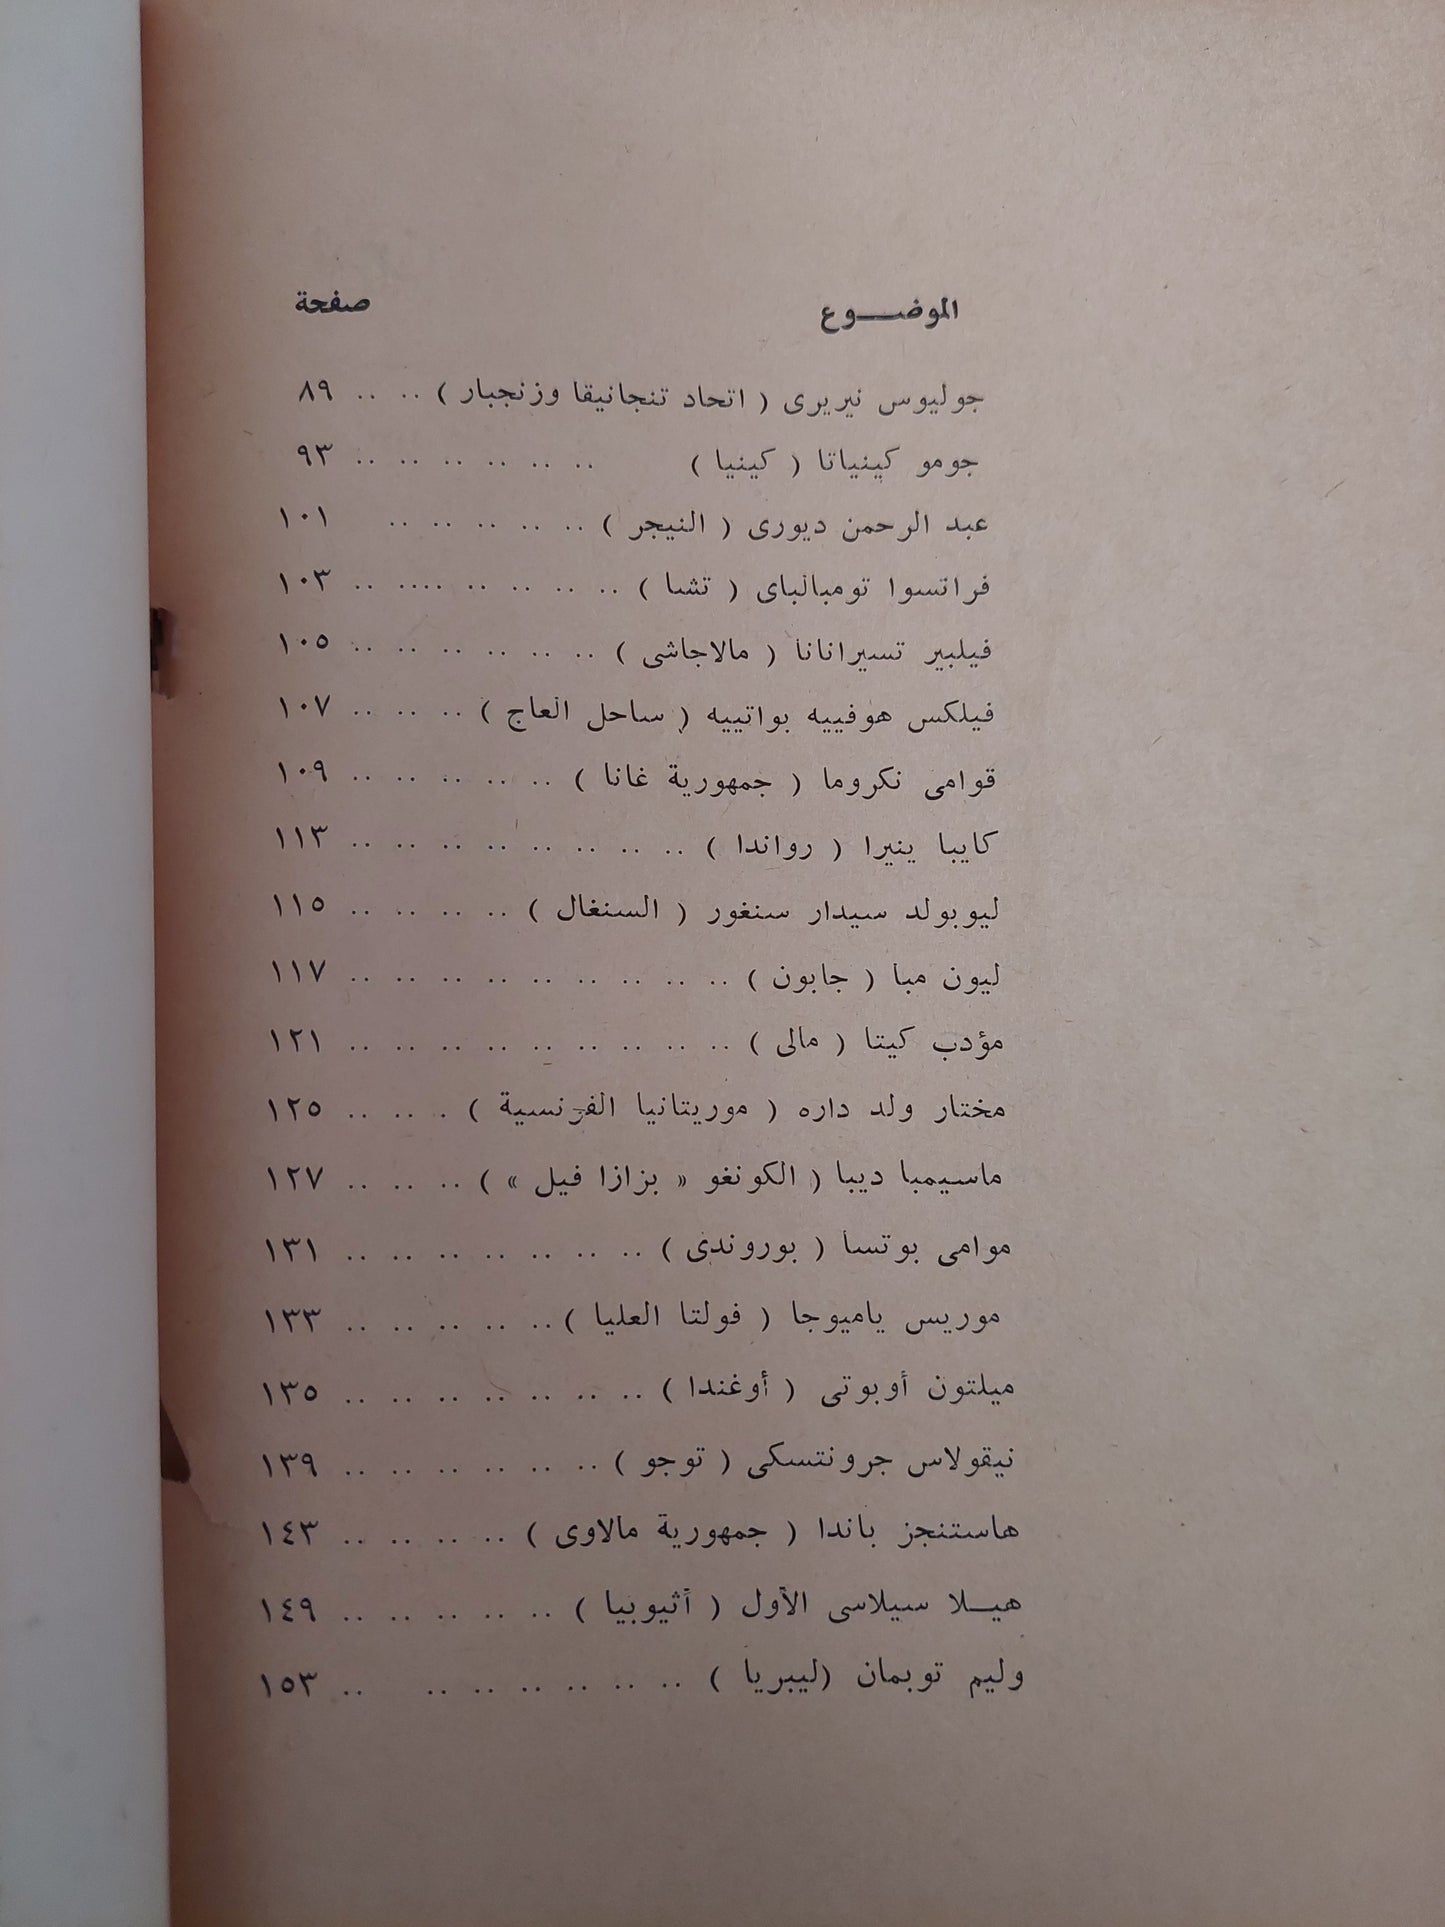 الموضـــوع صفحة
جوليوس نيريرى ( اتحاد تنجانيقا وزنجبار ) .. .. ٨٩
جومو كينياتا ( كينيا ) .. .. .. .. .. .. ٩٣
عبد الرحمن ديورى ( النيجر ) .. .. .. .. .. ١٠١
فراتسوا تومبالباى ( تشا ) .. .. .. .. .... .. ١٠٣
فيلبير تسيرانانا ( مالاجاشى ) .. .. .. .. .. .. ١٠٥
فيلكس هوفييه بواتييه ( ساحل العاج ) .. .. .. ١٠٧
قوامى نكروما ( جمهورية غانا ) .. .. .. .. .. ١٠٩
كايبا ينيرا ( رواندا ) .. .. .. .. .. .. .. .. ١١٣
ليوبولد سيدار سنغور ( السنغال ) .. .. .. .. ١١٥
ليون مبا ( جابون ) .. .. .. .. .. .. .. .. .. ١١٧
مؤدب كيتا ( مالى ) .. .. .. .. .. .. .. .. .. ١٢١
مختار ولد داره ( موريتانيا الفرنسية ) . .. .. ١٢٥
ماسيمبا ديبا ( الكونغو « بزازا فيل » ) .. .. .. ١٢٧
موامى بوتسا ( بوروندى ) .. .. .. .. .. .. .. ١٣١
موريس ياميوجا ( فولتا العليا ) .. .. .. .. .. ١٣٣
ميلتون أوبوتى ( أوغندا ) .. .. .. .. .. .. .. ١٣٥
نيقولاس جرونتسكى ( توجو ) .. .. .. .. .. .. ١٣٩
هاستنجز باندا ( جمهورية مالاوى ) .. .. .. .. ١٤٣
هيـــلا سيلاسى الأول ( أثيوبيا ) .. .. .. .. .. ١٤٩
وليم توبمان (ليبريا ) .. .. .. .. .. .. .. ١٥٣